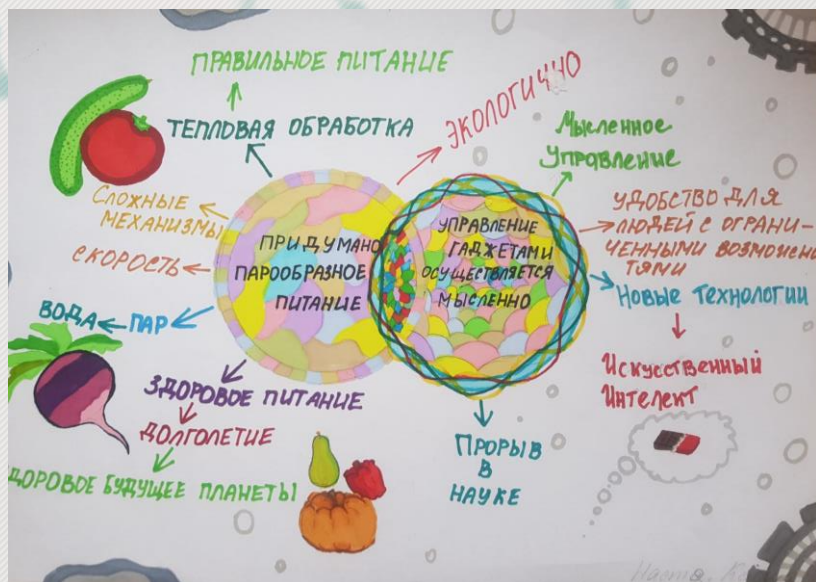 ПРАВИЛЬНОЕ ПИТАНИЕ
ТЕПЛОВАЯ ОБРАБОТКА
ЭКОЛОГИЧНО
Мысленное
Управление
Сложные
механизмы
скорость
ВОДА ПАР
ПРИДУМАНО
ПАРООБРАЗНОЕ
ПИТАНИЕ
УПРАВЛЕНИЕ
ГАДЖЕТАМИ
ОСУЩЕСТВЛЯЕТСЯ
МЫСЛЕННО
УДОБСТВО ДЛЯ
ЛЮДЕЙ С ОГРАНИ-
ЧЕННЫМИ ВОЗМОЖН
ТЯМИ
Новые технологии
Искусственный
Интелект
ЗДОРОВОЕ ПИТАНИЕ
ДОЛГОЛЕТИЕ
ДОРОВОЕ БУДУЩЕЕ ПЛАНЕТЫ
ПРОРЫВ
В
НАУКЕ
Настя